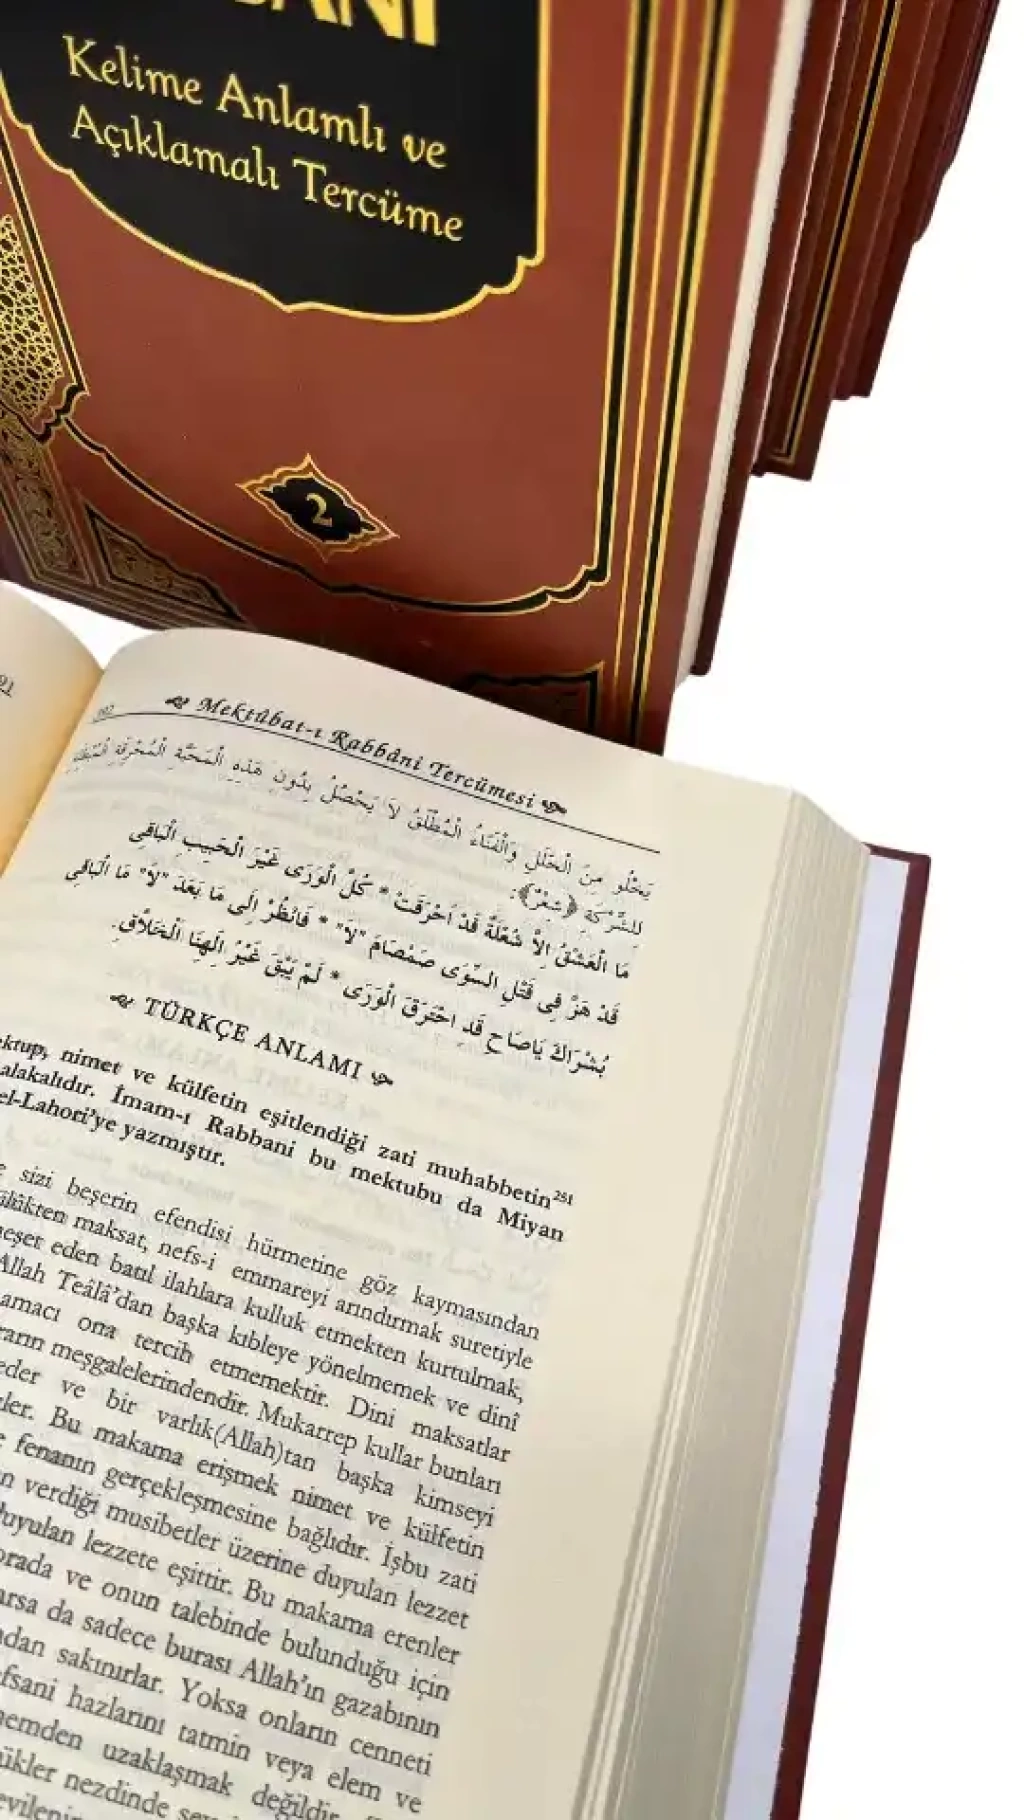 Kelime Anlamlı ve
Açıklamalı Tercüme
2
Mektûbat-ı Rabbâni Tercümesi
يَخْلُو مِنَ الْخَلَلِ وَالْفَنَاءُ الْمُطْلَقُ لاَ يَحْصُلُ بِدُونِ هَذِهِ الْمَحَبَّةِ الْمُحْرِقَةِ
لِلشِّرْكَةِ ﴿شِعْرٌ﴾:
مَا الْعَشْقُ اِلاَّ شُعْلَةٌ قَدْ اَحْرَقَتْ * كُلَّ الْوَرَى غَيْرَ الْحَبِيبِ الْبَاقِى
قَدْ هَزَّ فِى قَتْلِ السِّوَى صَمْصَامَ "لاَ" * فَانْظُرْ اِلَى مَا بَعْدَ "لاَ" مَا الْبَاقِى
بُشْرَاكَ يَاصَاحِ قَدِ احْتَرَقَ الْوَرَى * لَمْ يَبْقَ غَيْرُ اِلَهِنَا الْخَلاَّقِ.
TÜRKÇE ANLAMI
nimet ve külfetin eşitlendiği zati muhabbetin²⁵¹
alakalıdır. İmam-ı Rabbani bu mektubu da Miyan
el-Lahori'ye yazmıştır.
sizi beşerin efendisi hürmetine göz kaymasından
maksat, nefs-i emmareyi arındırmak suretiyle
eden batıl ilahlara kulluk etmekten kurtulmak,
Allah Teâlâ'dan başka kıbleye yönelmemek ve dinî
amacı ona tercih etmemektir. Dini maksatlar
meşgalelerindendir. Mukarrep kullar bunları
eder ve bir varlık(Allah)tan başka kimseyi
Bu makama erişmek nimet ve külfetin
fenanın gerçekleşmesine bağlıdır. İşbu zati
verdiği musibetler üzerine duyulan lezzet
duyulan lezzete eşittir. Bu makama erenler
ve onun talebinde bulunduğu için
da sadece burası Allah'ın gazabının
sakınırlar. Yoksa onların cenneti
hazlarını tatmin veya elem ve
uzaklaşmak değildir.
nezdinde